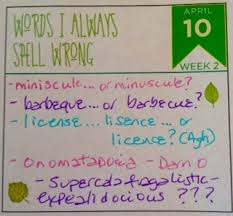 WORDS I ALWAYS
SPELL WRONG
APRIL
10
WEEK 2
- miniscule... or minuscule?
- barbeque... or barbecue?
- license... lisence... or
license? (Agh)
- Onomatapoeia - Damn
- Supercalafragalistic-
expealidocious ???